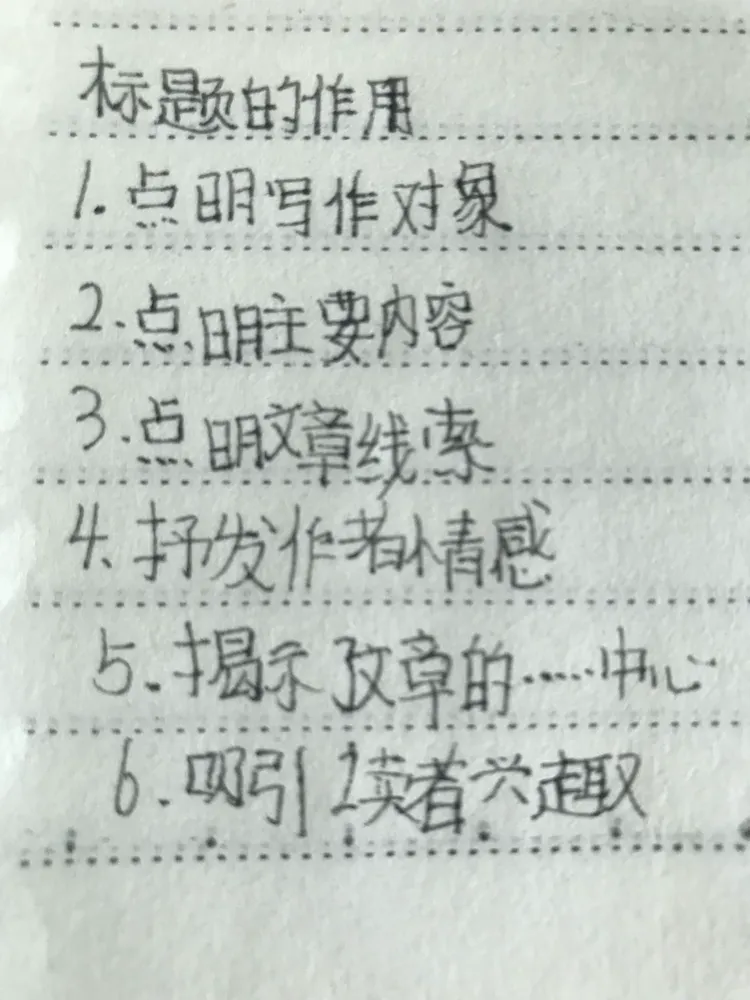 标题的作用
1.点明写作对象
2.点明主要内容
3.点明文章线索
4.抒发作者情感
5.揭示了文章的……中心
6.吸引读者兴趣